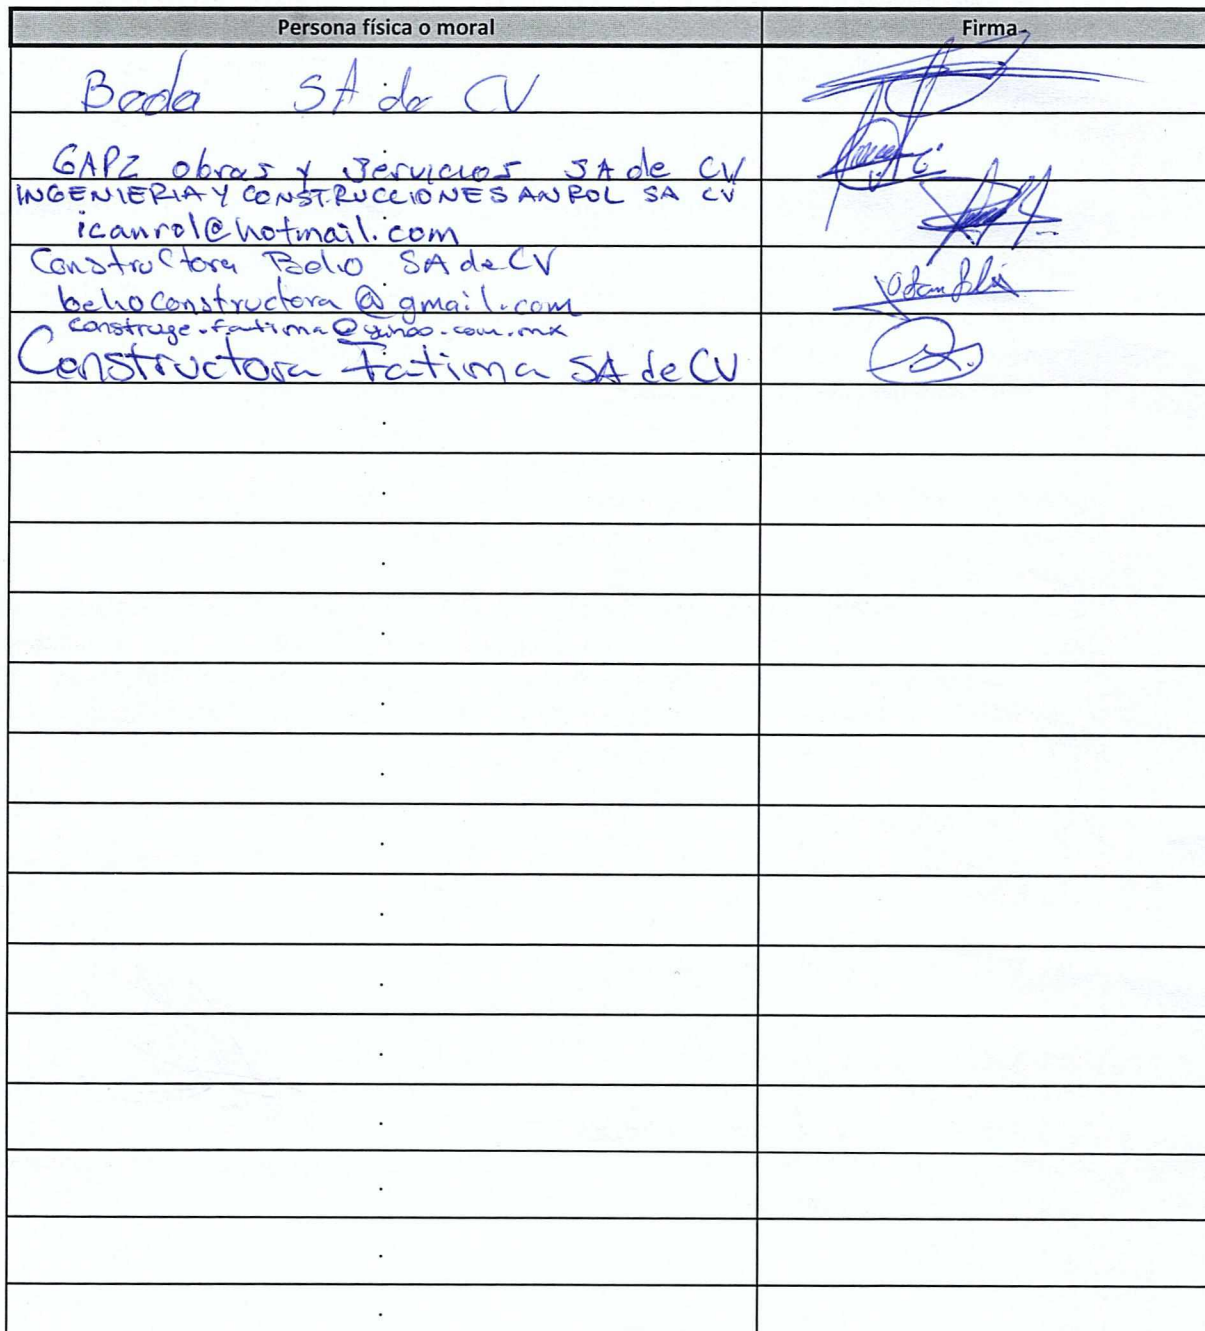 Persona física o moral Firma
Boda SA de CV
GAPZ obras y servicios SA de CV
INGENIERIA Y CONSTRUCCIONES ANROL SA CV
icanrol@hotmail.com
Constructora Beho SA de CV
behoconstructora@gmail.com
construye.fatima@yahoo.com.mx
Constructora Fatima SA de CV